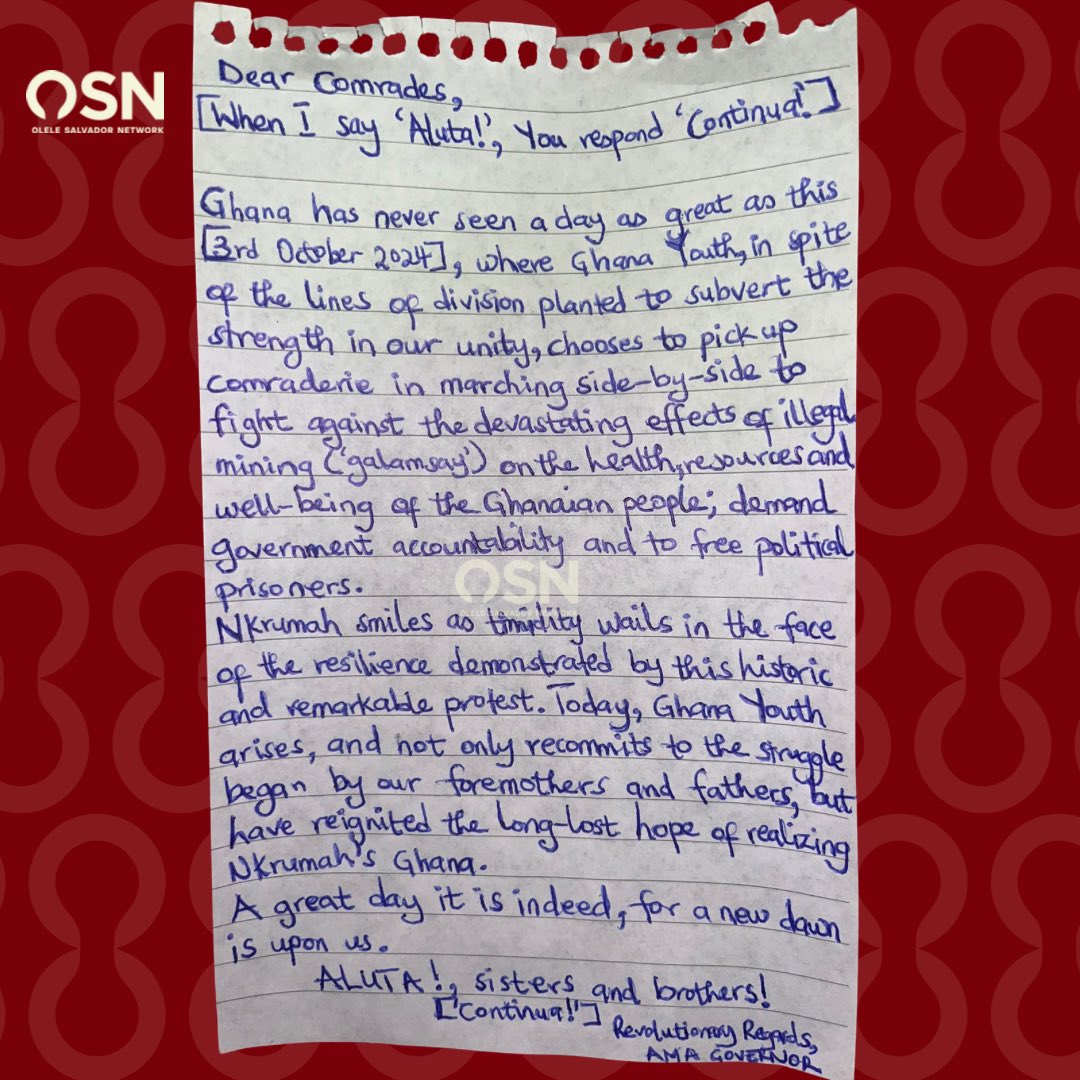 OSN
OLELE SALVADOR NETWORK
Dear Comrades,
[When I say 'Aluta!', You respond 'Continua!']
Ghana has never seen a day as great as this
[3rd October 2024], where Ghana Youth, in spite
of the lines of division planted to subvert the
strength in our unity, chooses to pick up
comraderie in marching side-by-side to
fight against the devastating effects of illegal
mining ('galamsay') on the health, resources and
well-being of the Ghanaian people; demand
government accountability and to free political
prisoners.
OSN
OLELE SALVADOR NETWORK
Nkrumah smiles as timidity wails in the face
of the resilience demonstrated by this historic
and remarkable protest. Today, Ghana Youth
arises, and not only recommits to the struggle
began by our foremothers and fathers, but
have reignited the long-lost hope of realizing
Nkrumah's Ghana.
A great day it is indeed, for a new dawn
is upon us.
ALUTA!, sisters and brothers!
['Continua!']
Revolutionary Regards,
AMA GOVERNOR